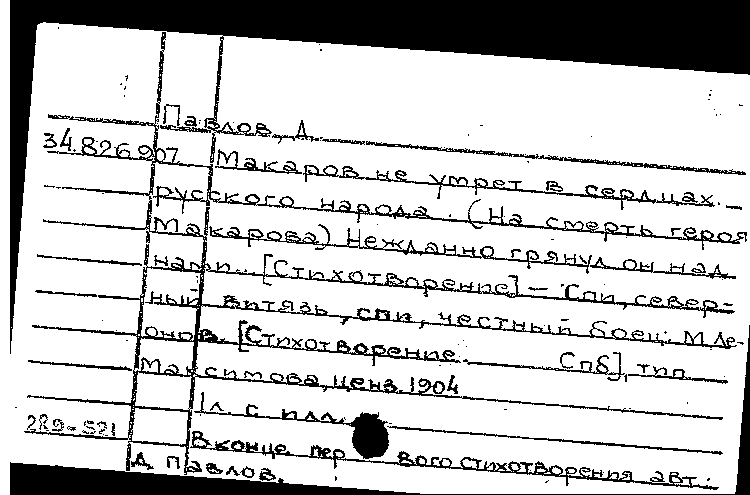 Павлов, Д.
34.826.907 Макаров не умрет в сердцах
русского народа. (На смерть героя
Макарова) Нежданно грянул он над
нами... [Стихотворение] — Спи, север-
ный витязь, спи, честный боец: М. Ле-
онов. [Стихотворение. Спб], тип.
Максимова, ценз. 1904
1 л. с илл.
289-521
В конце первого стихотворения авт.:
Д. Павлов.